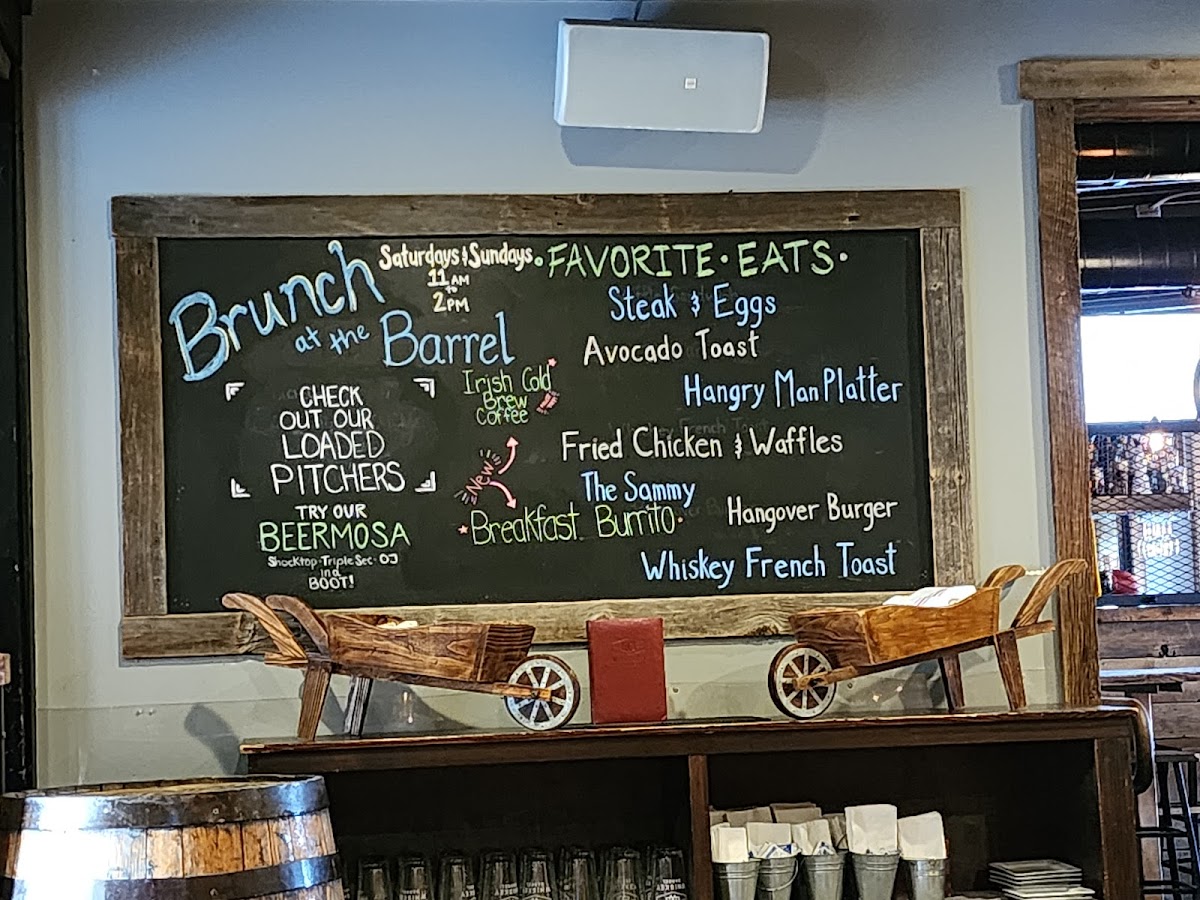 Brunch
at the Barrel
Saturdays & Sundays
11 AM
to
2 PM
CHECK
OUT OUR
LOADED
PITCHERS
TRY OUR
BEERMOSA
Shocktop·Triple Sec·OJ
in a
BOOT!
Irish Cold
Brew
Coffee
New
·FAVORITE·EATS·
Steak & Eggs
Avocado Toast
Hangry Man Platter
Fried Chicken & Waffles
The Sammy
Breakfast Burrito
Hangover Burger
Whiskey French Toast